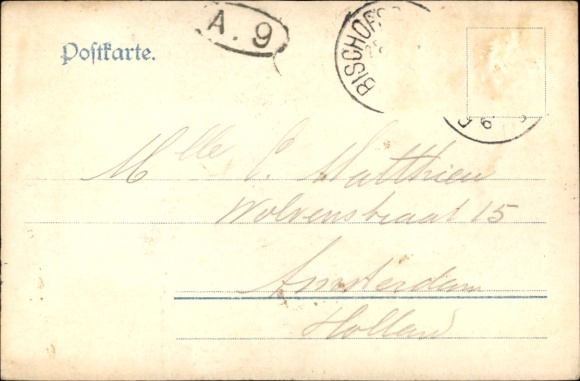 A. 9
Postkarte.
BISCHOF
Mlle E. Matthieu
Wolvenstraat 15
Amsterdam
Holland